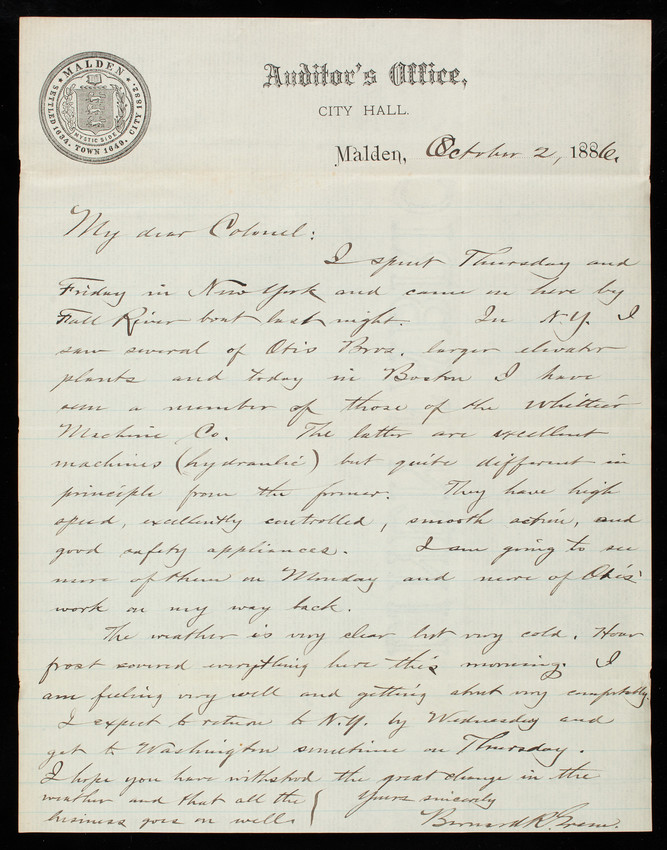 MALDEN
SETTLED 1634. TOWN 1649. CITY 1882.
MYSTIC SIDE
Auditor's Office,
CITY HALL.
Malden, October 2, 1886.
My dear Colonel:
I spent Thursday and
Friday in New York and came on here by
Fall River boat last night. In N.Y. I
saw several of Otis Bros. larger elevator
plants and today in Boston I have
seen a number of those of the Whittier
Machine Co. The latter are excellent
machines (hydraulic) but quite different in
principle from the former. They have high
speed, excellently controlled, smooth action, and
good safety appliances. I am going to see
more of them on Monday and more of Otis'
work on my way back.
The weather is very clear but very cold. Hoar
frost covered everything here this morning. I
am feeling very well and getting about very comfortably.
I expect to return to N.Y. by Wednesday and
get to Washington sometime on Thursday.
I hope you have withstood the great change in the
weather and that all the
business goes on well.
Yours sincerely
Bernard R. Green.